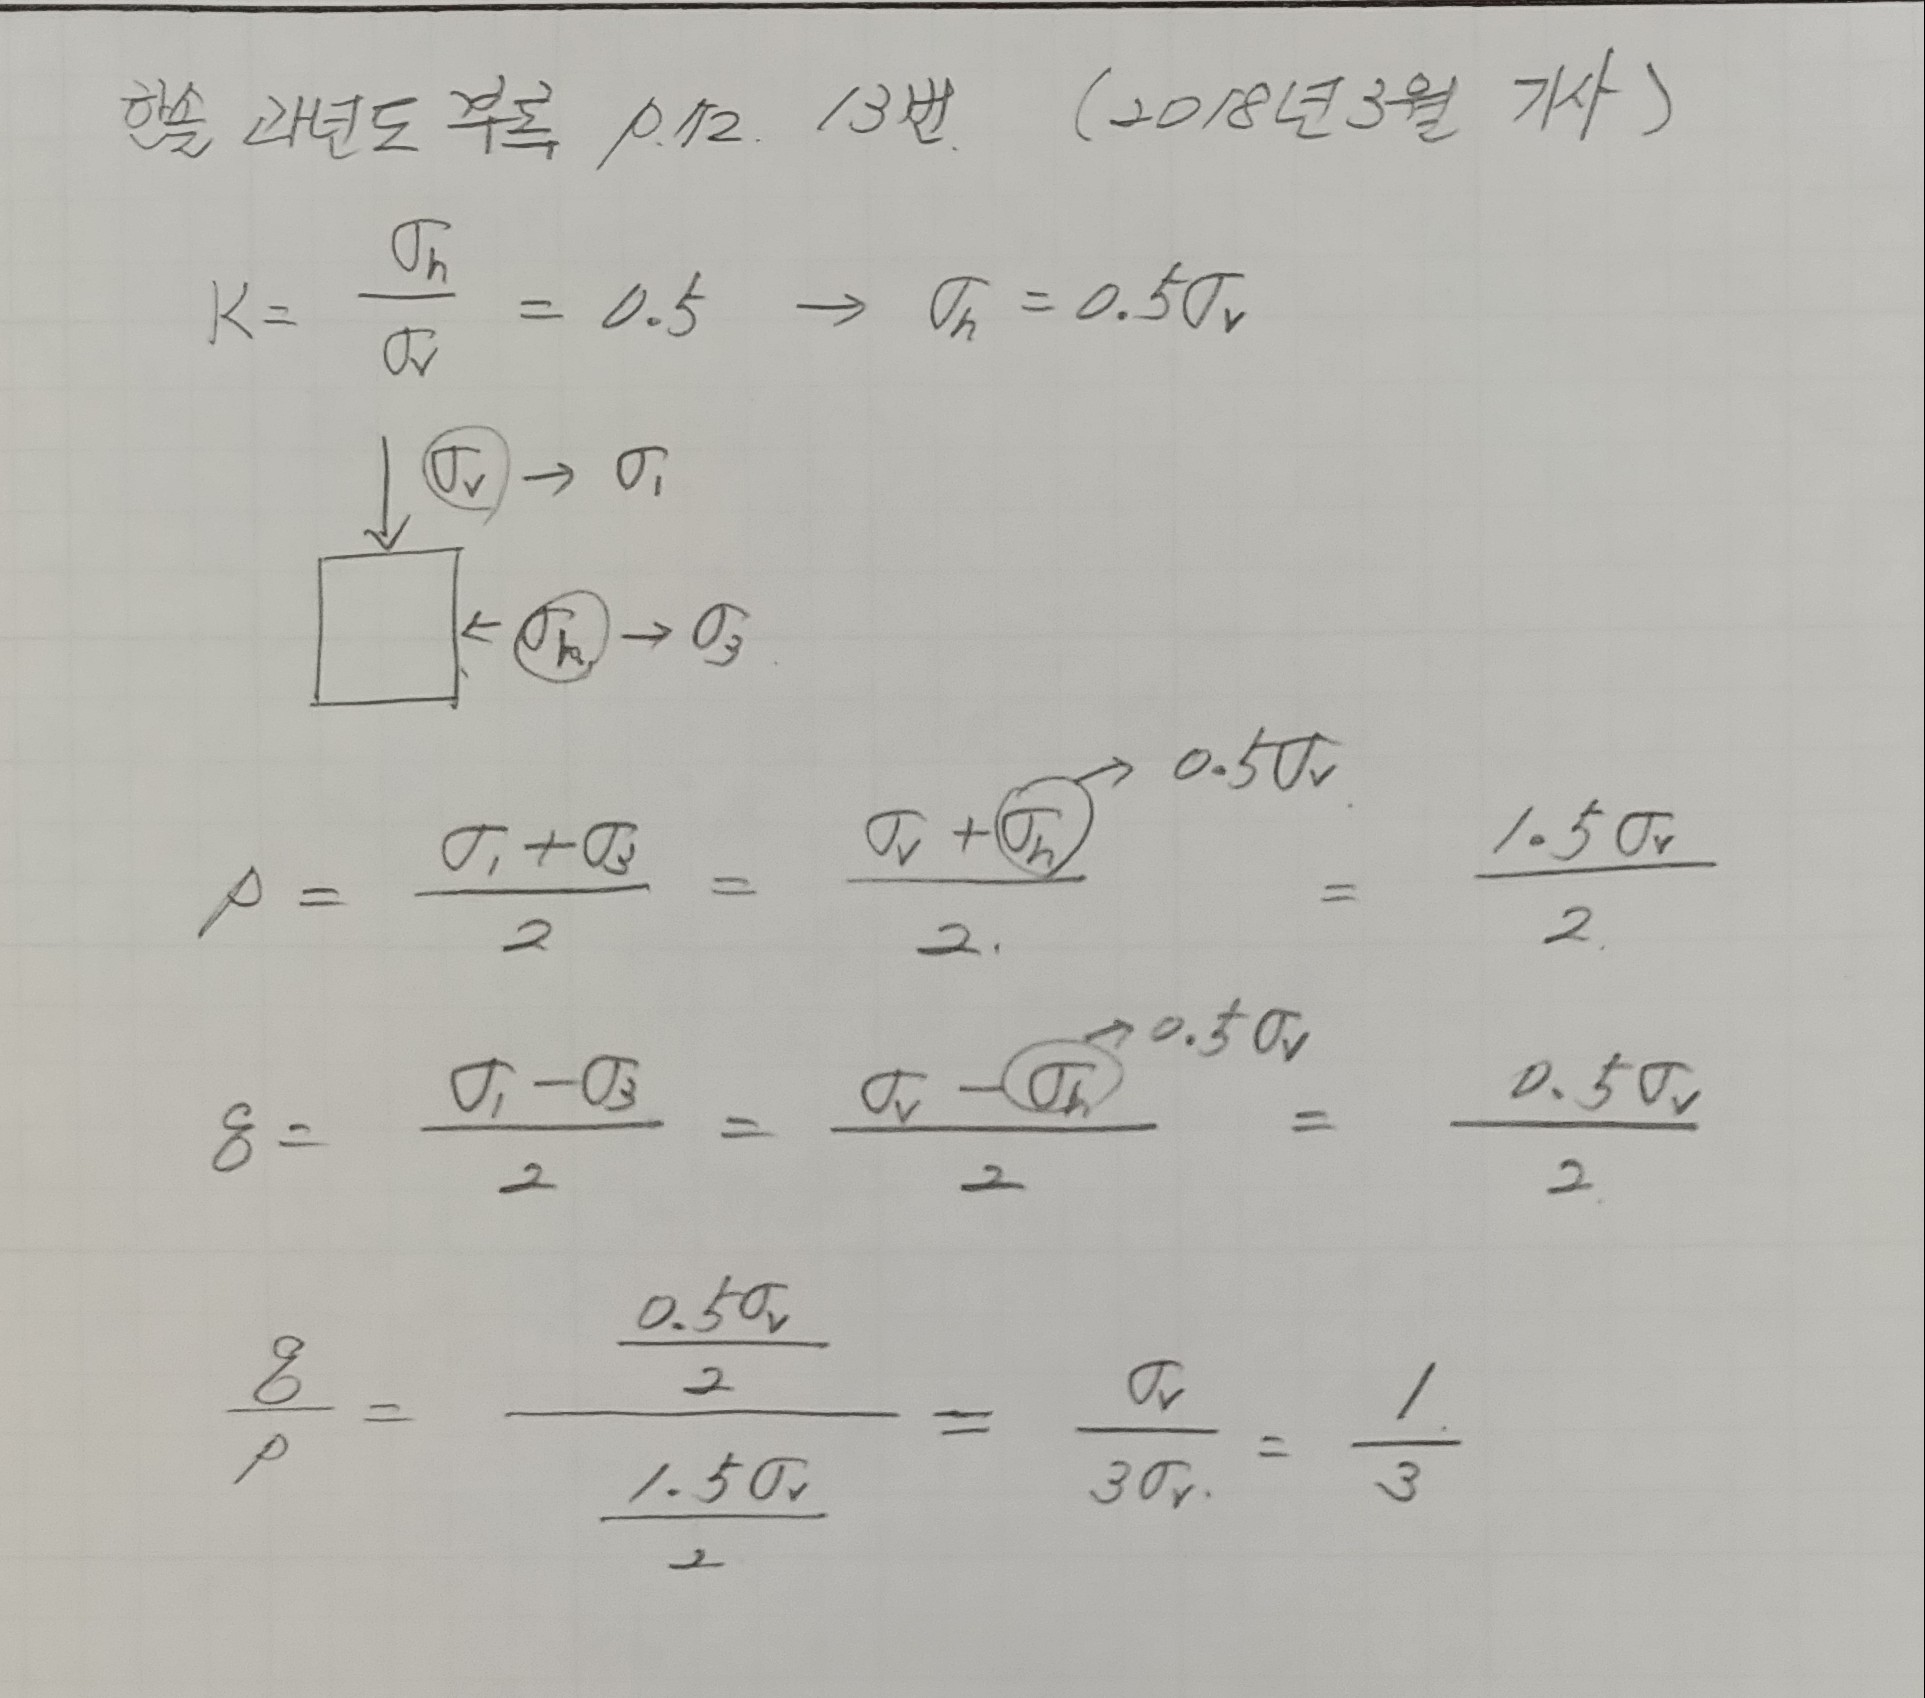 한솔 과년도 부록 p.72. 13번. (2018년 3월 기사)
K = σh / σv = 0.5 → σh = 0.5σv
σv → σ1
← σh → σ3
→ 0.5σv
p = (σ1 + σ3) / 2 = (σv + σh) / 2. = 1.5σv / 2.
→ 0.5σv
q = (σ1 - σ3) / 2 = (σv - σh) / 2 = 0.5σv / 2.
q / p = (0.5σv / 2) / (1.5σv / 2) = σv / 3σv. = 1 / 3